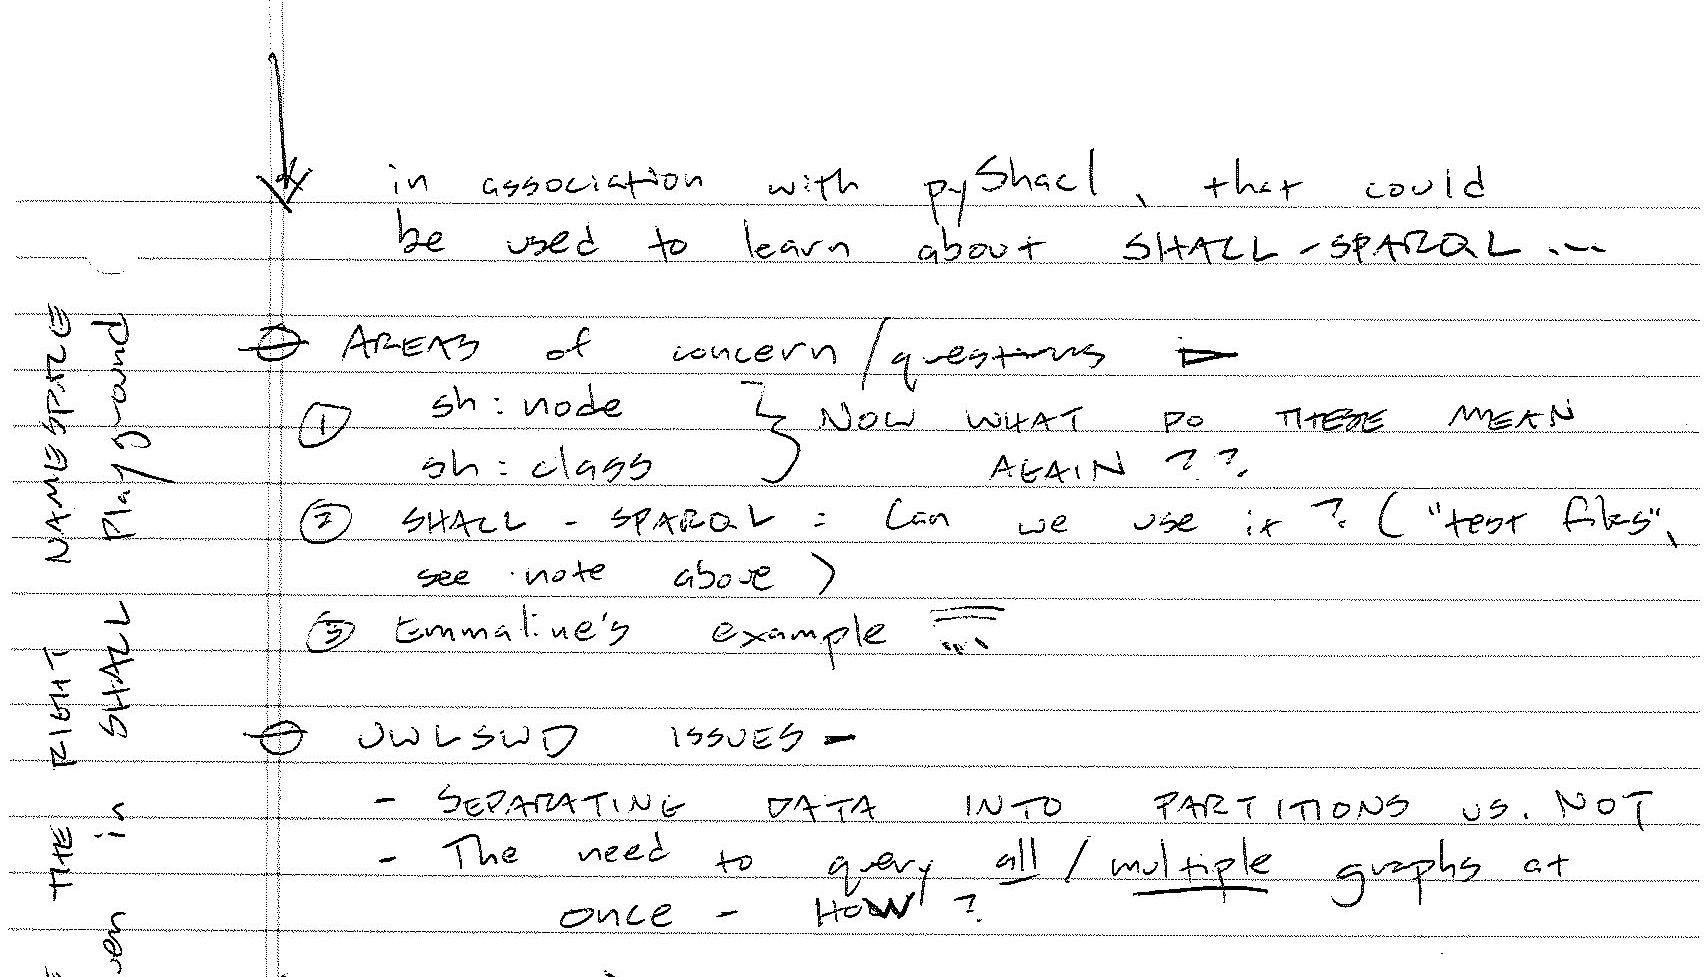 in association with pyShacl, that could
be used to learn about SHACL-SPARQL ...
AREAS of concern/questions
① sh:node
sh:class
NOW WHAT DO THESE MEAN
AGAIN ??
② SHACL-SPARQL: Can we use it? ("test files",
see note above)
③ Emmaline's example ...
UWLSWD ISSUES -
- SEPARATING DATA INTO PARTITIONS VS. NOT
- The need to query all / multiple graphs at
once - HOW?
THE RIGHT NAMESPACE
ven in SHACL Playground